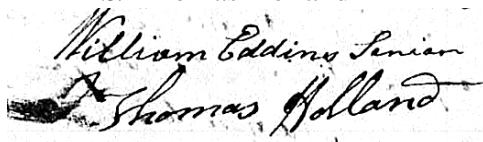 William Eddins Senior
Thomas Holland